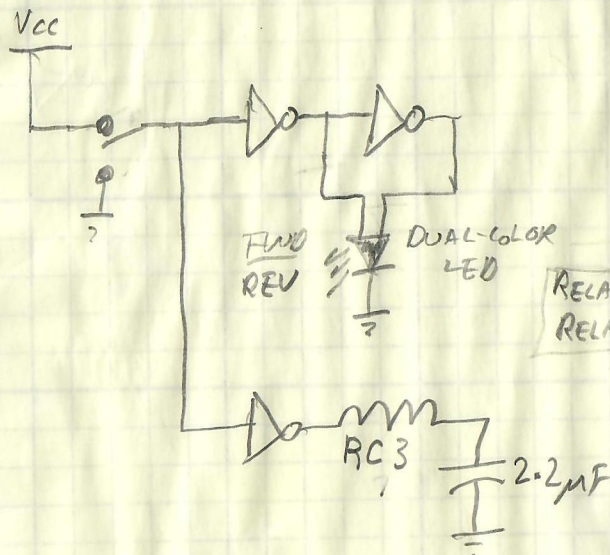 Vcc
FWD
REV
DUAL-COLOR
LED
RELA
RELA
RC3
?
2.2μF